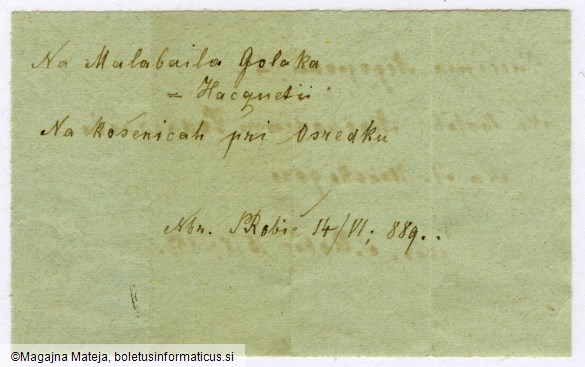 Na Malabaila Golaka
= Hacquetii
Na košenicah pri Osredku
Nbr. SRobič 14/VI; 889..
©Magajna Mateja, boletusinformaticus.si